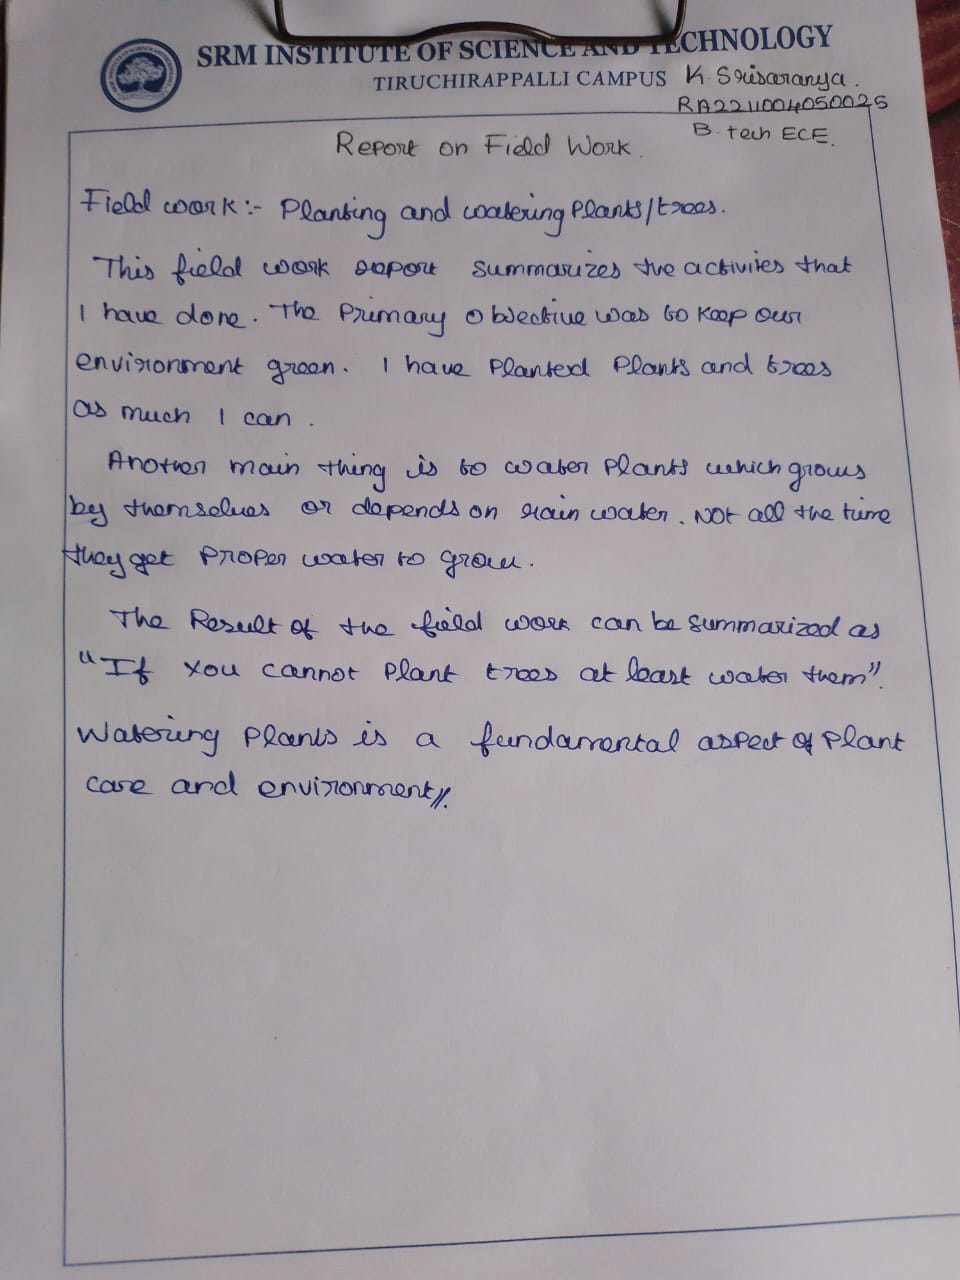 SRM INSTITUTE OF SCIENCE AND TECHNOLOGY
TIRUCHIRAPPALLI CAMPUS
K. Srisaranya.
RA2211004050025
B. tech ECE.
Report on Field Work.
Field work:- Planting and watering plants/trees.
This field work report summarizes the activities that
I have done. The Primary Objective was to keep our
environment green. I have planted plants and trees
as much I can.
Another main thing is to water plants which grows
by themselves or depends on rain water. Not all the time
they get proper water to grow.
The Result of the field work can be summarized as
"If you cannot plant trees at least water them".
Watering plants is a fundamental aspect of plant
care and environment//.